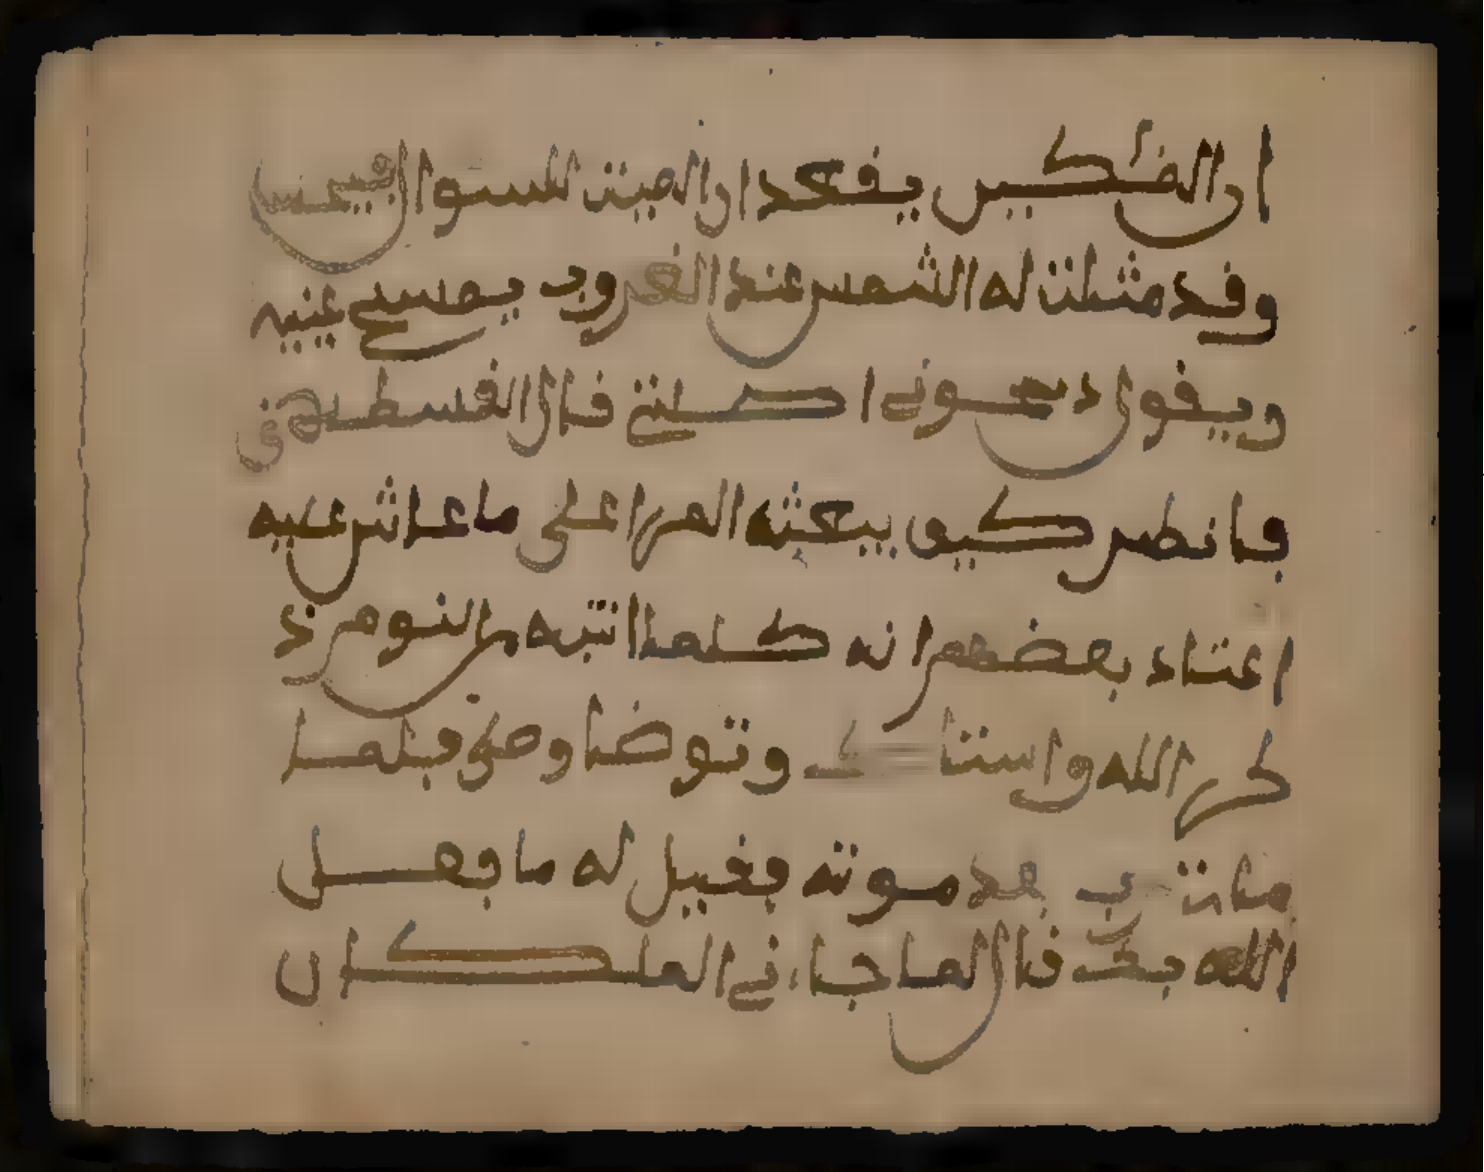 ان الملكين يفعدان الميت للسوال فيجلس
وفد مثلت له الشمس عند الغروب يمسح عينيه
ويفول دعوني اصلي فال الفسطلاني
فانظر كيف يبعث المرء على ما عاش عليه
اعتاد بعضهم انه كلما انتبه من النوم ذ
كر الله واستاك وتوضا وصلى فلما
مات ربي بعد موته ففيل له ما فعل
الله بك فال لما جاءني الملكان